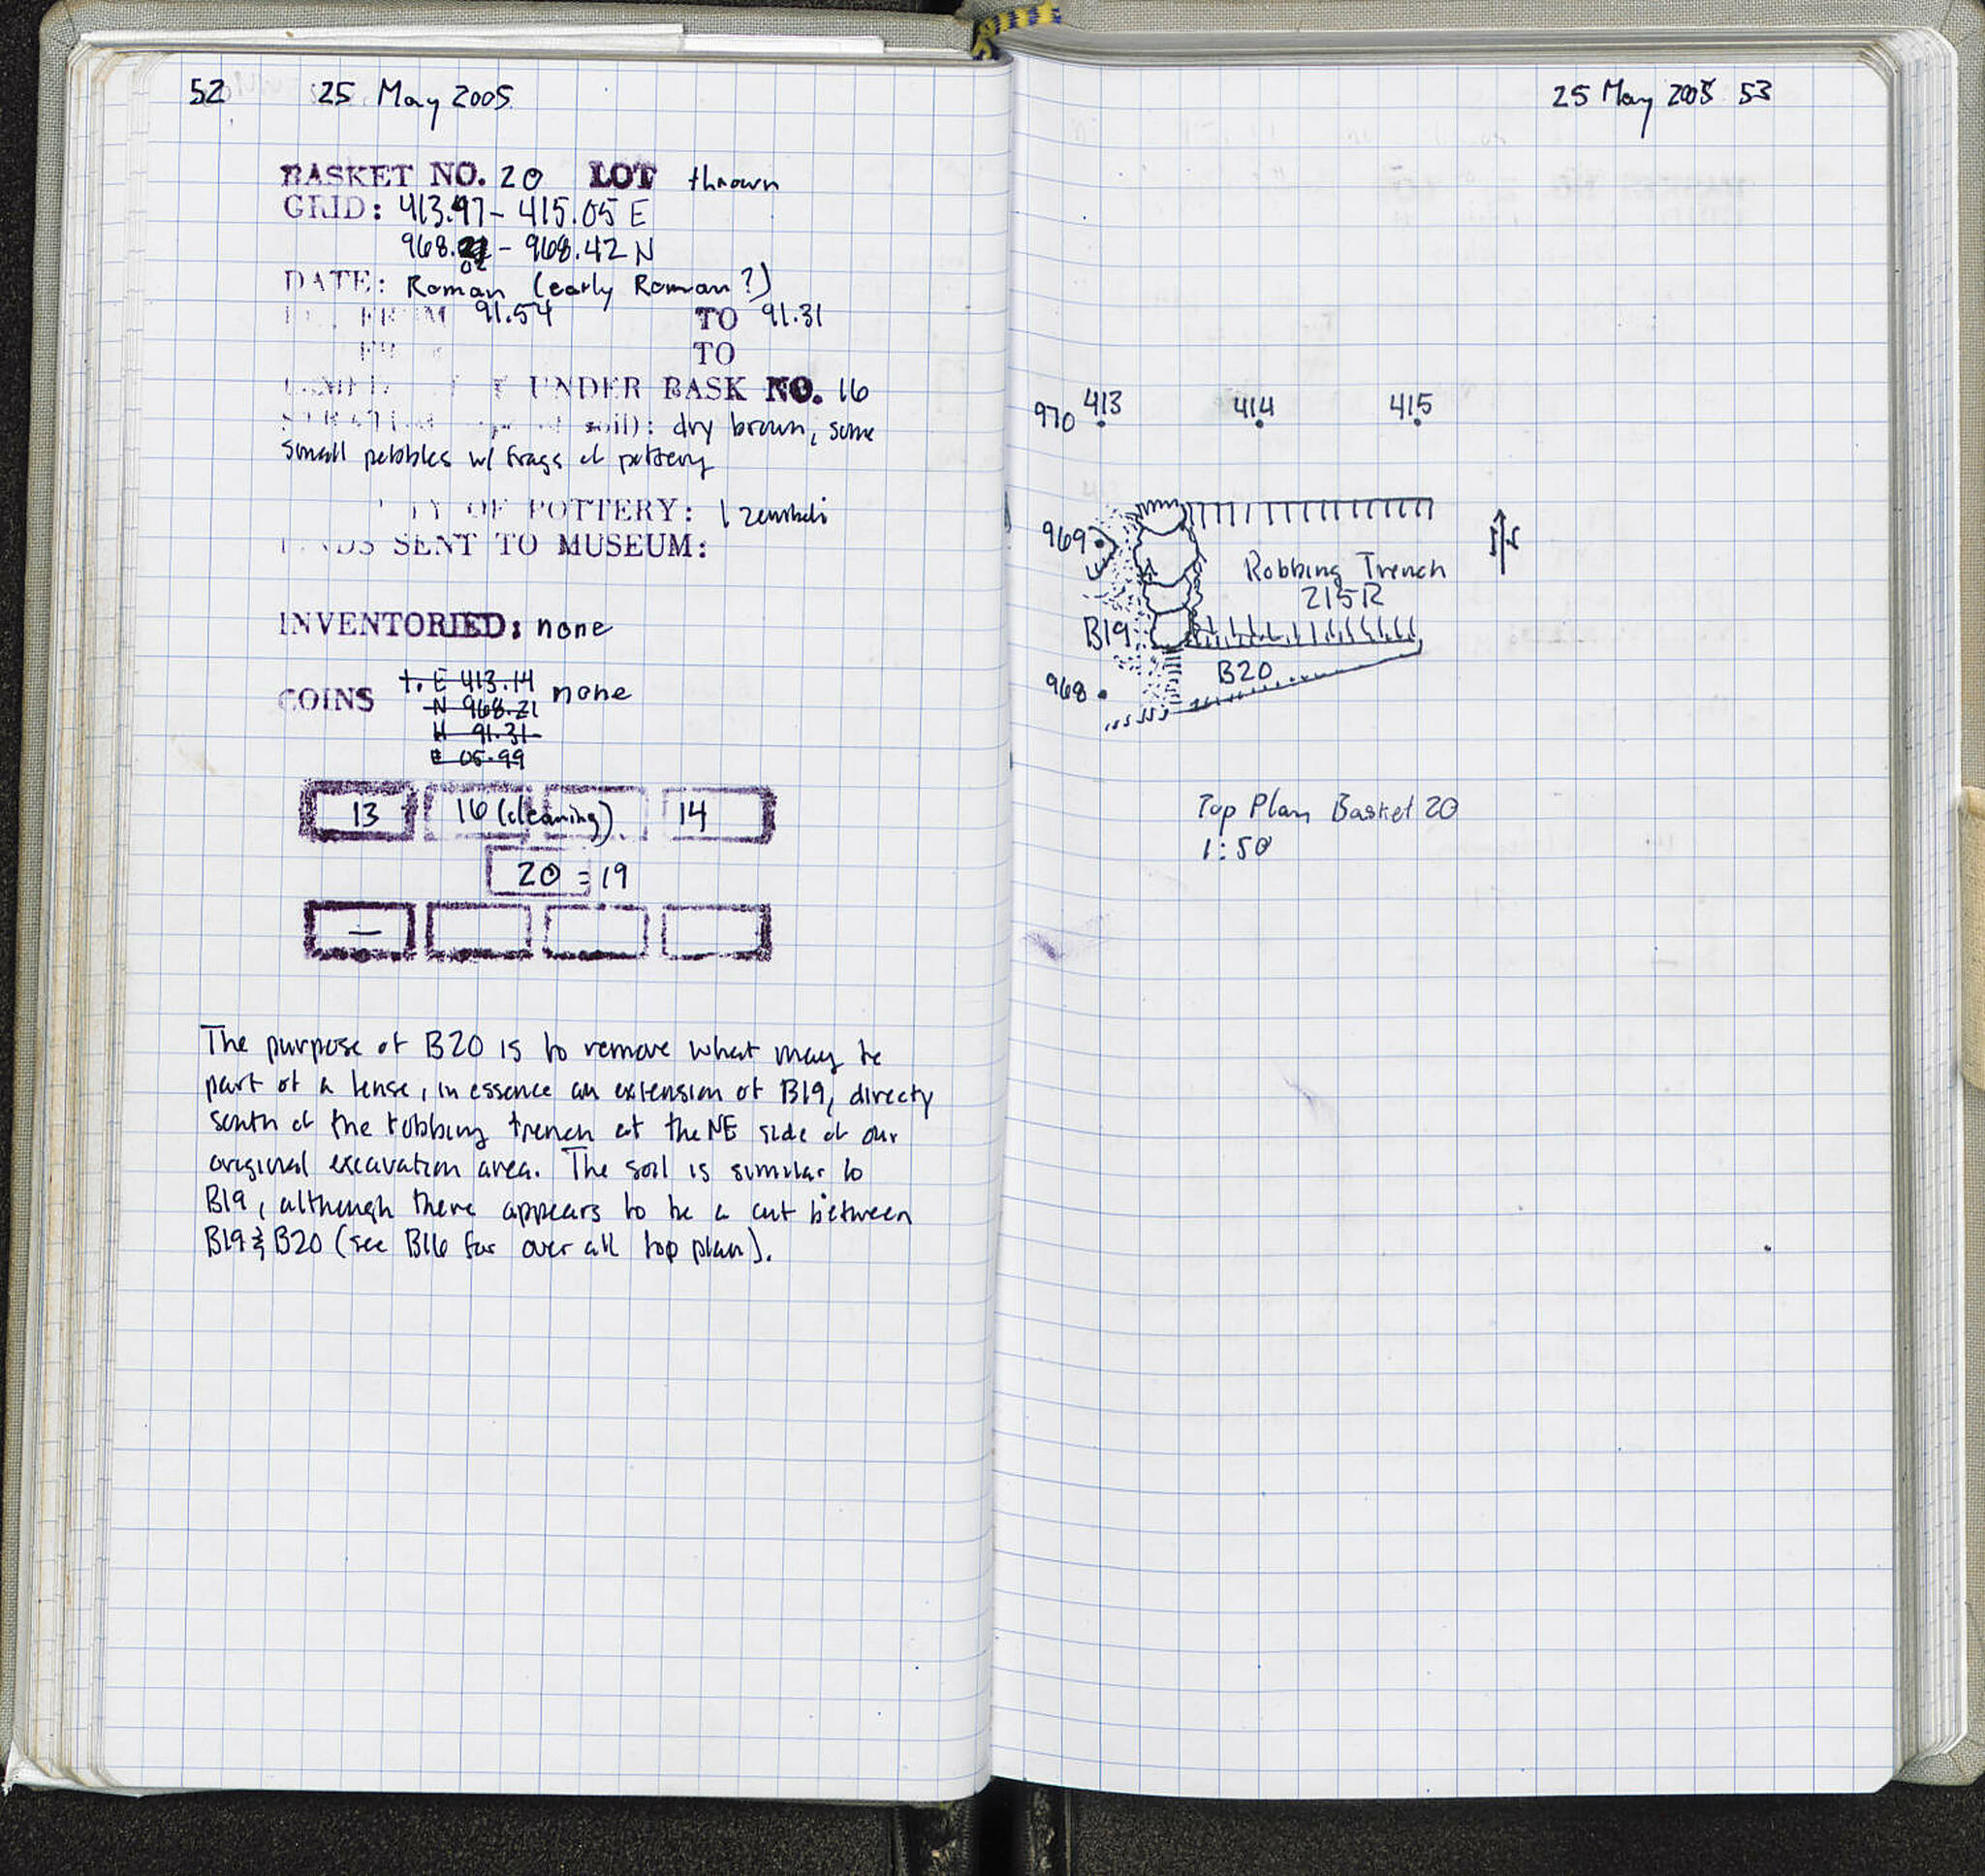 52 25 May 2005
BASKET NO. 20 LOT thrown
GRID: 413.97 - 415.05 E
968.02 - 968.42 N
DATE: Roman (early Roman?)
FROM 91.54 TO 91.31
TO
UNDER BASK NO. 16
soil): dry brown, some
small pebbles w/ frags of pottery
OF POTTERY: 1 zembeli
SENT TO MUSEUM:
INVENTORIED: none
1. E 413.14
COINS none
N 968.21
H 91.31
05.99
13 16 (cleaning) 14
20 = 19
—
The purpose of B20 is to remove what may be
part of a lense, in essence an extension of B19, directy
south of the robbing trench at the NE side of our
original excavation area. The soil is similar to
B19, although there appears to be a cut between
B19 & B20 (see B16 for over all top plan).
25 May 2005 53
970 413 414 415
969
Robbing Trench
215R
B19
B20
968
N
Top Plan Basket 20
1:50